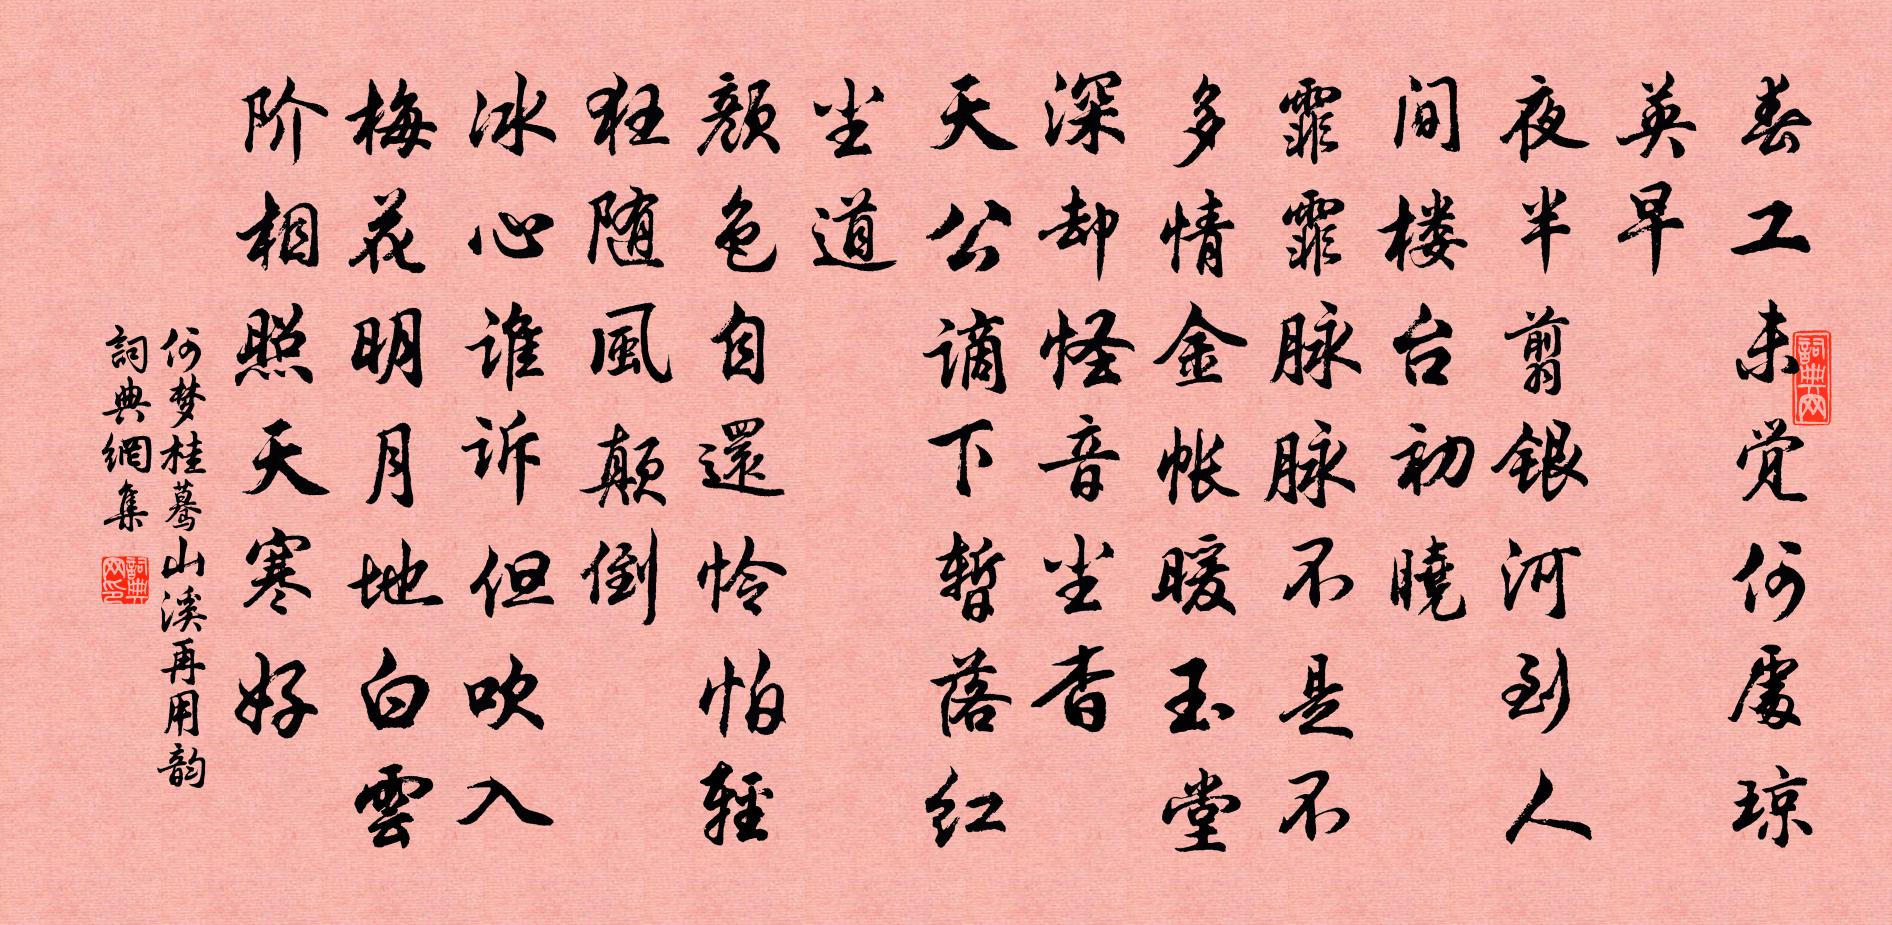 春工未觉何處琼
英早
夜半剪银河到人
间楼台初曉
霏霏脉脉不是不
多情金帐暖玉堂
深却怪音尘杳
天公谪下暂落红
尘道
颜色自還怜怕輕
狂随風颠倒
冰心谁诉但吹入
梅花明月地白雲
阶相照天寒好
何梦桂蓦山溪再用韵
詞典網集
詞典网
詞典网印